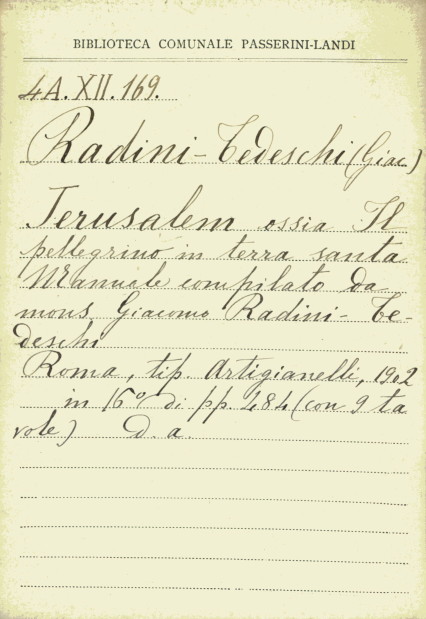 BIBLIOTECA COMUNALE PASSERINI-LANDI
4A.XII.169.
Radini-Tedeschi (Giac.)
Jerusalem ossia Il
pellegrino in terra santa
Manuale compilato da
mons. Giacomo Radini-Te-
deschi
Roma, tip. Artigianelli, 1902
in 16° di pp. 484 (con 9 ta
vole) D. a.